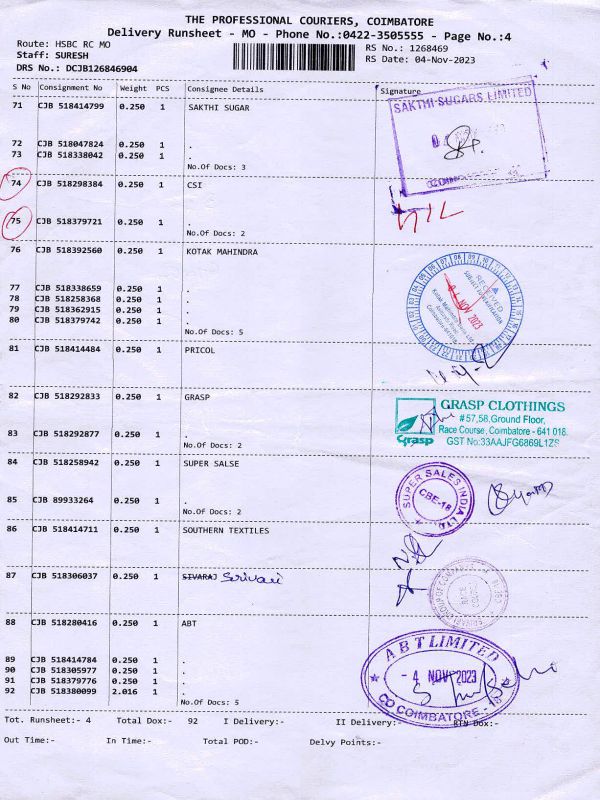 THE PROFESSIONAL COURIERS, COIMBATORE
Delivery Runsheet - MO - Phone No.:0422-3505555 - Page No.:4
Route: HSBC RC MO
Staff: SURESH
DRS No.: DCJB126846904
RS No.: 1268469
RS Date: 04-Nov-2023
S No Consignment No Weight PCS Consignee Details Signature
71 CJB 518414799 0.250 1 SAKTHI SUGAR
SAKTHI SUGARS LIMITED
72 CJB 518047824 0.250 1 .
73 CJB 518338042 0.250 1 .
No.Of Docs: 3
74 CJB 518298384 0.250 1 CSI
NIL
75 CJB 518379721 0.250 1 .
No.Of Docs: 2
76 CJB 518392560 0.250 1 KOTAK MAHINDRA
RECEIVED
NOV 2023
77 CJB 518338659 0.250 1 .
78 CJB 518258368 0.250 1 .
79 CJB 518362915 0.250 1 .
80 CJB 518379742 0.250 1 .
No.Of Docs: 5
81 CJB 518414484 0.250 1 PRICOL
82 CJB 518292833 0.250 1 GRASP
Grasp
GRASP CLOTHINGS
#57,58,Ground Floor,
Race Course, Coimbatore - 641 018.
GST No:33AAJFG6869L1ZS
83 CJB 518292877 0.250 1 .
No.Of Docs: 2
84 CJB 518258942 0.250 1 SUPER SALSE
SUPER SALES INDIA LTD.
CBE-18
85 CJB 89933264 0.250 1 .
No.Of Docs: 2
86 CJB 518414711 0.250 1 SOUTHERN TEXTILES
87 CJB 518306037 0.250 1 SIVARAJ Srivari
88 CJB 518280416 0.250 1 ABT
A B T LIMITED
- 4 NOV 2023
CO COIMBATORE - 18
89 CJB 518414784 0.250 1 .
90 CJB 518305977 0.250 1 .
91 CJB 518379776 0.250 1 .
92 CJB 518380099 2.016 1 .
No.Of Docs: 5
Tot. Runsheet:- 4 Total Dox:- 92 I Delivery:- II Delivery:- RTN Dox:-
Out Time:- In Time:- Total POD:- Delvy Points:-